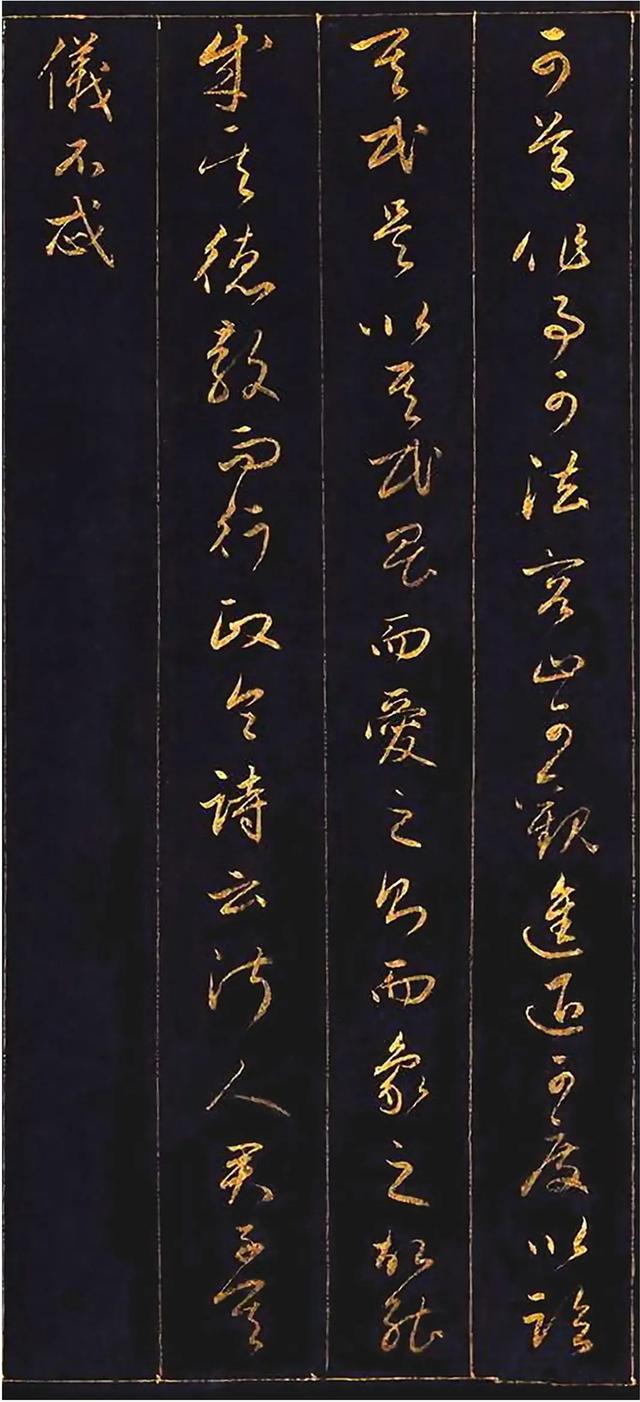 可尊作事可法容止可觀進退可度以臨
其民是以其民畏而愛之則而象之故能
成其德教而行政令詩云淑人君子其
儀不忒